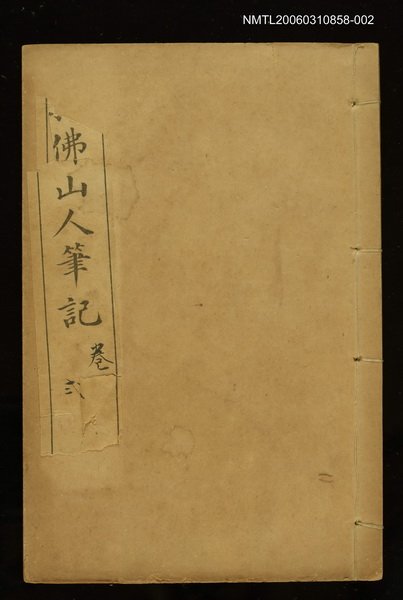 NMTL20060310858-002
佛山人筆記
卷
弍
二